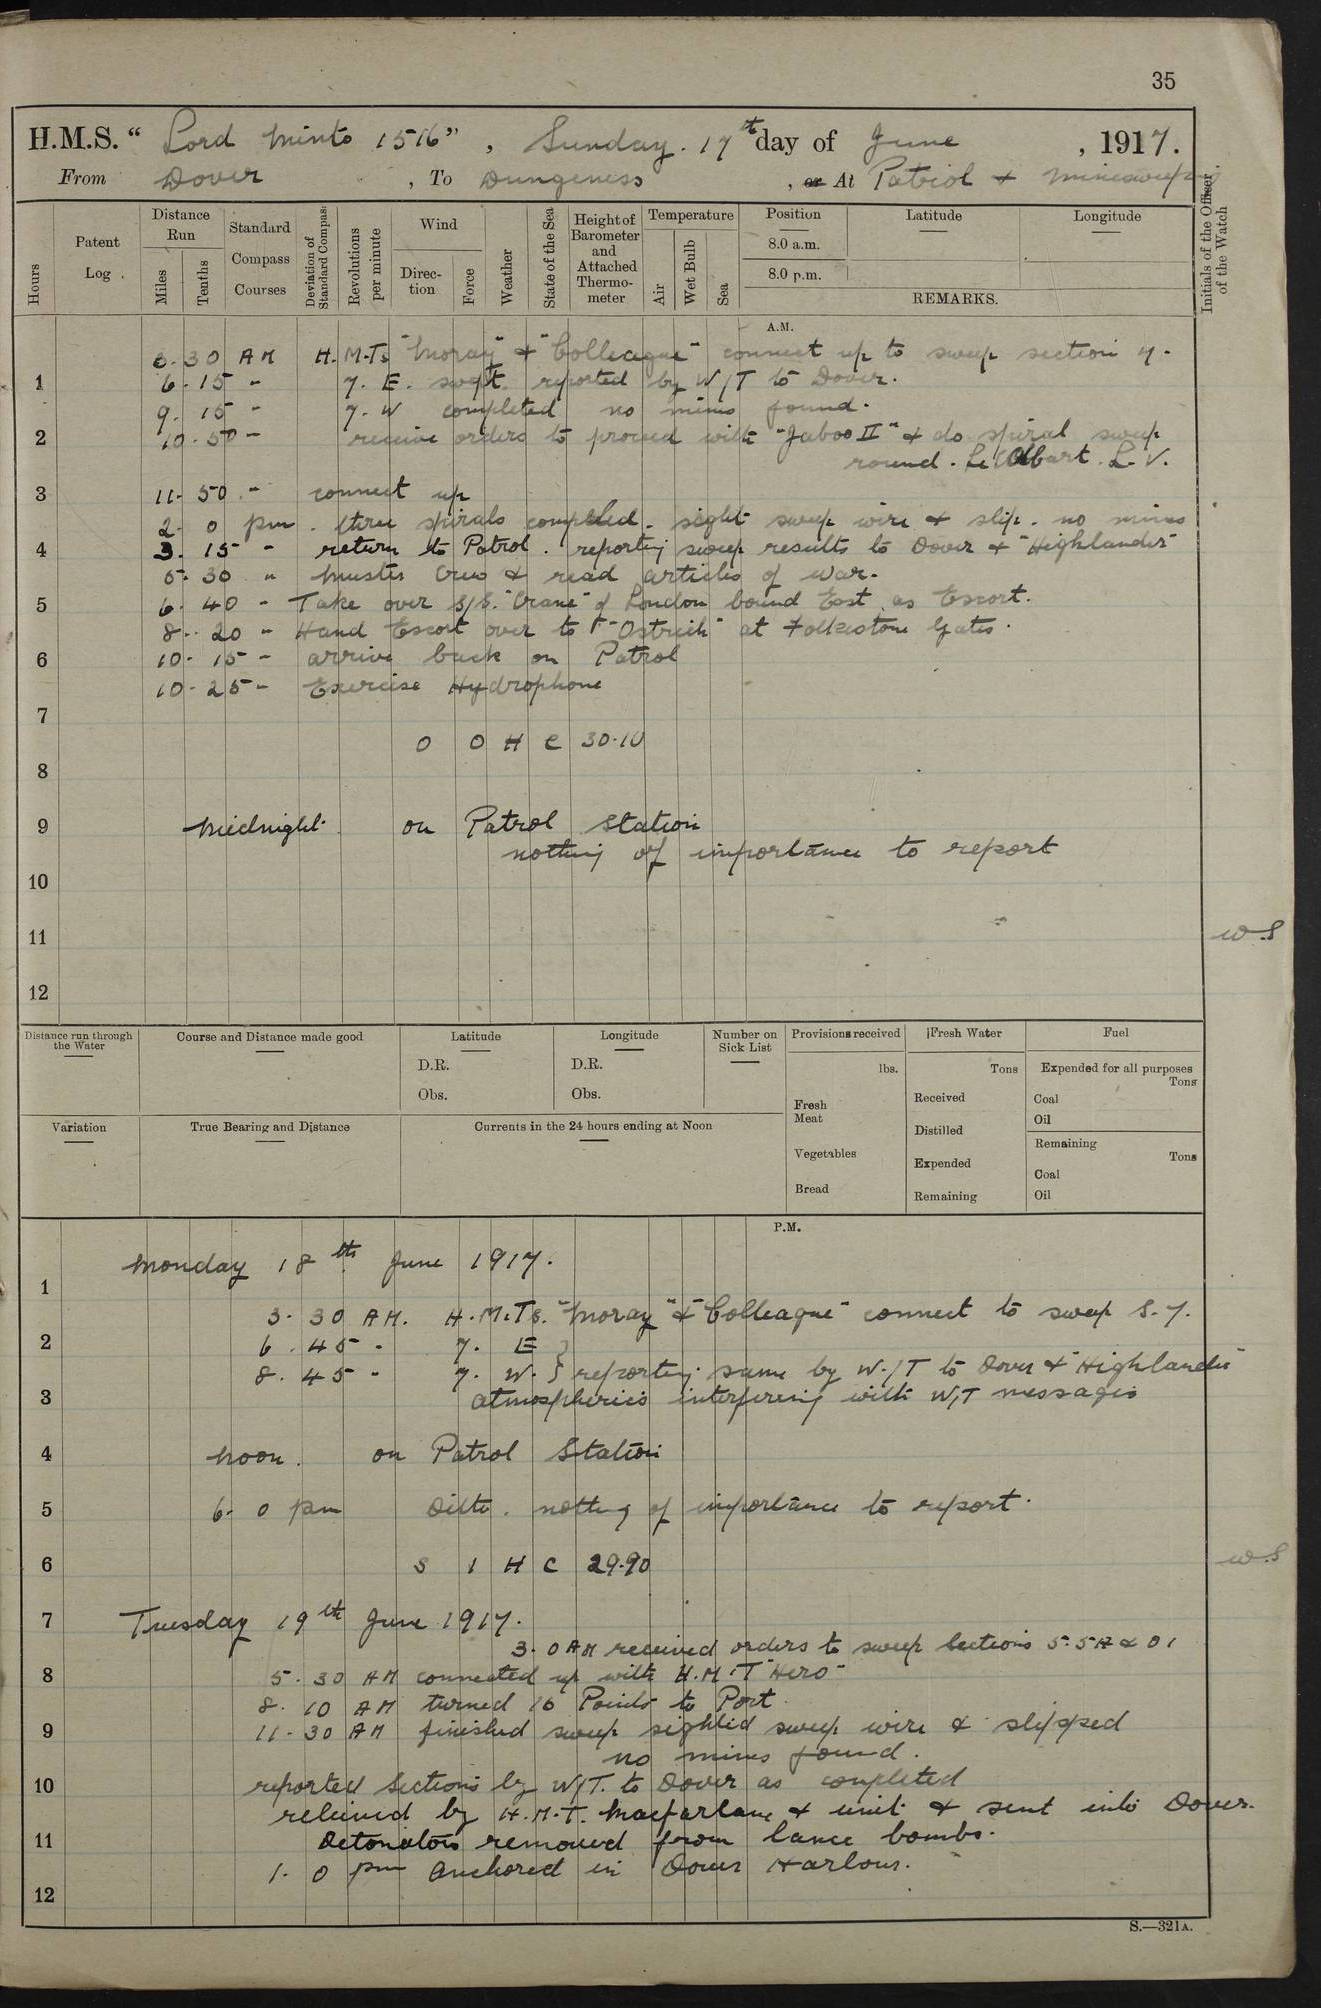 35
H.M.S. “ Lord Minto 1516 ” , Sunday . 17th day of June , 1917.
From Dover , To Dungeness , or At Patrol & Minesweeping
Hours
Patent Log
Distance Run
Miles
Tenths
Standard Compass Courses
Deviation of Standard Compass
Revolutions per minute
Wind
Direction
Force
Weather
State of the Sea
Height of Barometer and Attached Thermometer
Temperature
Air
Wet Bulb
Sea
Position
8.0 a.m.
8.0 p.m.
Latitude
Longitude
REMARKS.
Initials of the Officer of the Watch
A.M.
3. 30 AM H.M.Ts "Moray" & "Colleague" connect up to sweep section 7.
1
6. 15 " 7. E. swept. reported by W/T to Dover.
9. 15 " 7. W completed no mines found.
2
10. 50 " receive orders to proceed with "Jaboo II" & do spiral sweep
round . Le Albart . L. V.
3
11. 50 . " connect up
2. 0 pm . three spirals completed. sight sweep wire & slip. no mines
4
3. 15 " return to Patrol . reporting sweep results to Dover & "Highlander"
5. 30 " Muster Crew & read articles of War.
5
6. 40 " Take over S/S. "Crane" of London bound East as Escort.
8. 20 " Hand Escort over to "Ostrich" at Folkestone Gates.
6
10. 15 " arrive back on Patrol
10. 25 " Exercise Hydrophone
7
0 0 H C 30.10
8
9
Midnight. on Patrol Station
nothing of importance to report
10
11
w.S
12
Distance run through the Water
Course and Distance made good
Latitude
D.R.
Obs.
Longitude
D.R.
Obs.
Number on Sick List
Provisions received
lbs.
Fresh Meat
Vegetables
Bread
Fresh Water
Tons
Received
Distilled
Expended
Remaining
Fuel
Expended for all purposes
Tons
Coal
Oil
Remaining
Tons
Coal
Oil
Variation
True Bearing and Distance
Currents in the 24 hours ending at Noon
P.M.
Monday 18th June 1917.
1
3. 30 AM. H.M.Ts. "Moray" & "Colleague" connect to sweep S. 7.
2
6. 45 " 7. E }
8. 45 " 7. W. } reporting same by W./T to Dover & "Highlander"
3
atmospherics interfering with W/T messages
4
Noon . on Patrol Station
5
6. 0 pm Ditto . nothing of importance to report.
6
S 1 H C 29.90
w.S
7
Tuesday 19th June 1917.
3. 0 AM received orders to sweep Sections 5. 5A & 01
8
5. 30 AM connected up with H.M.T "Hero"
8. 10 AM turned 16 Points to Port.
9
11. 30 AM finished sweep sighted sweep wire & slipped
no mines found.
10
reported Sections by W/T. to Dover as completed
relieved by H.M.T. Macfarlane & unit & sent into Dover.
11
Detonators removed from lance bombs.
1. 0 pm anchored in Dover Harbour.
12
S.—321A.